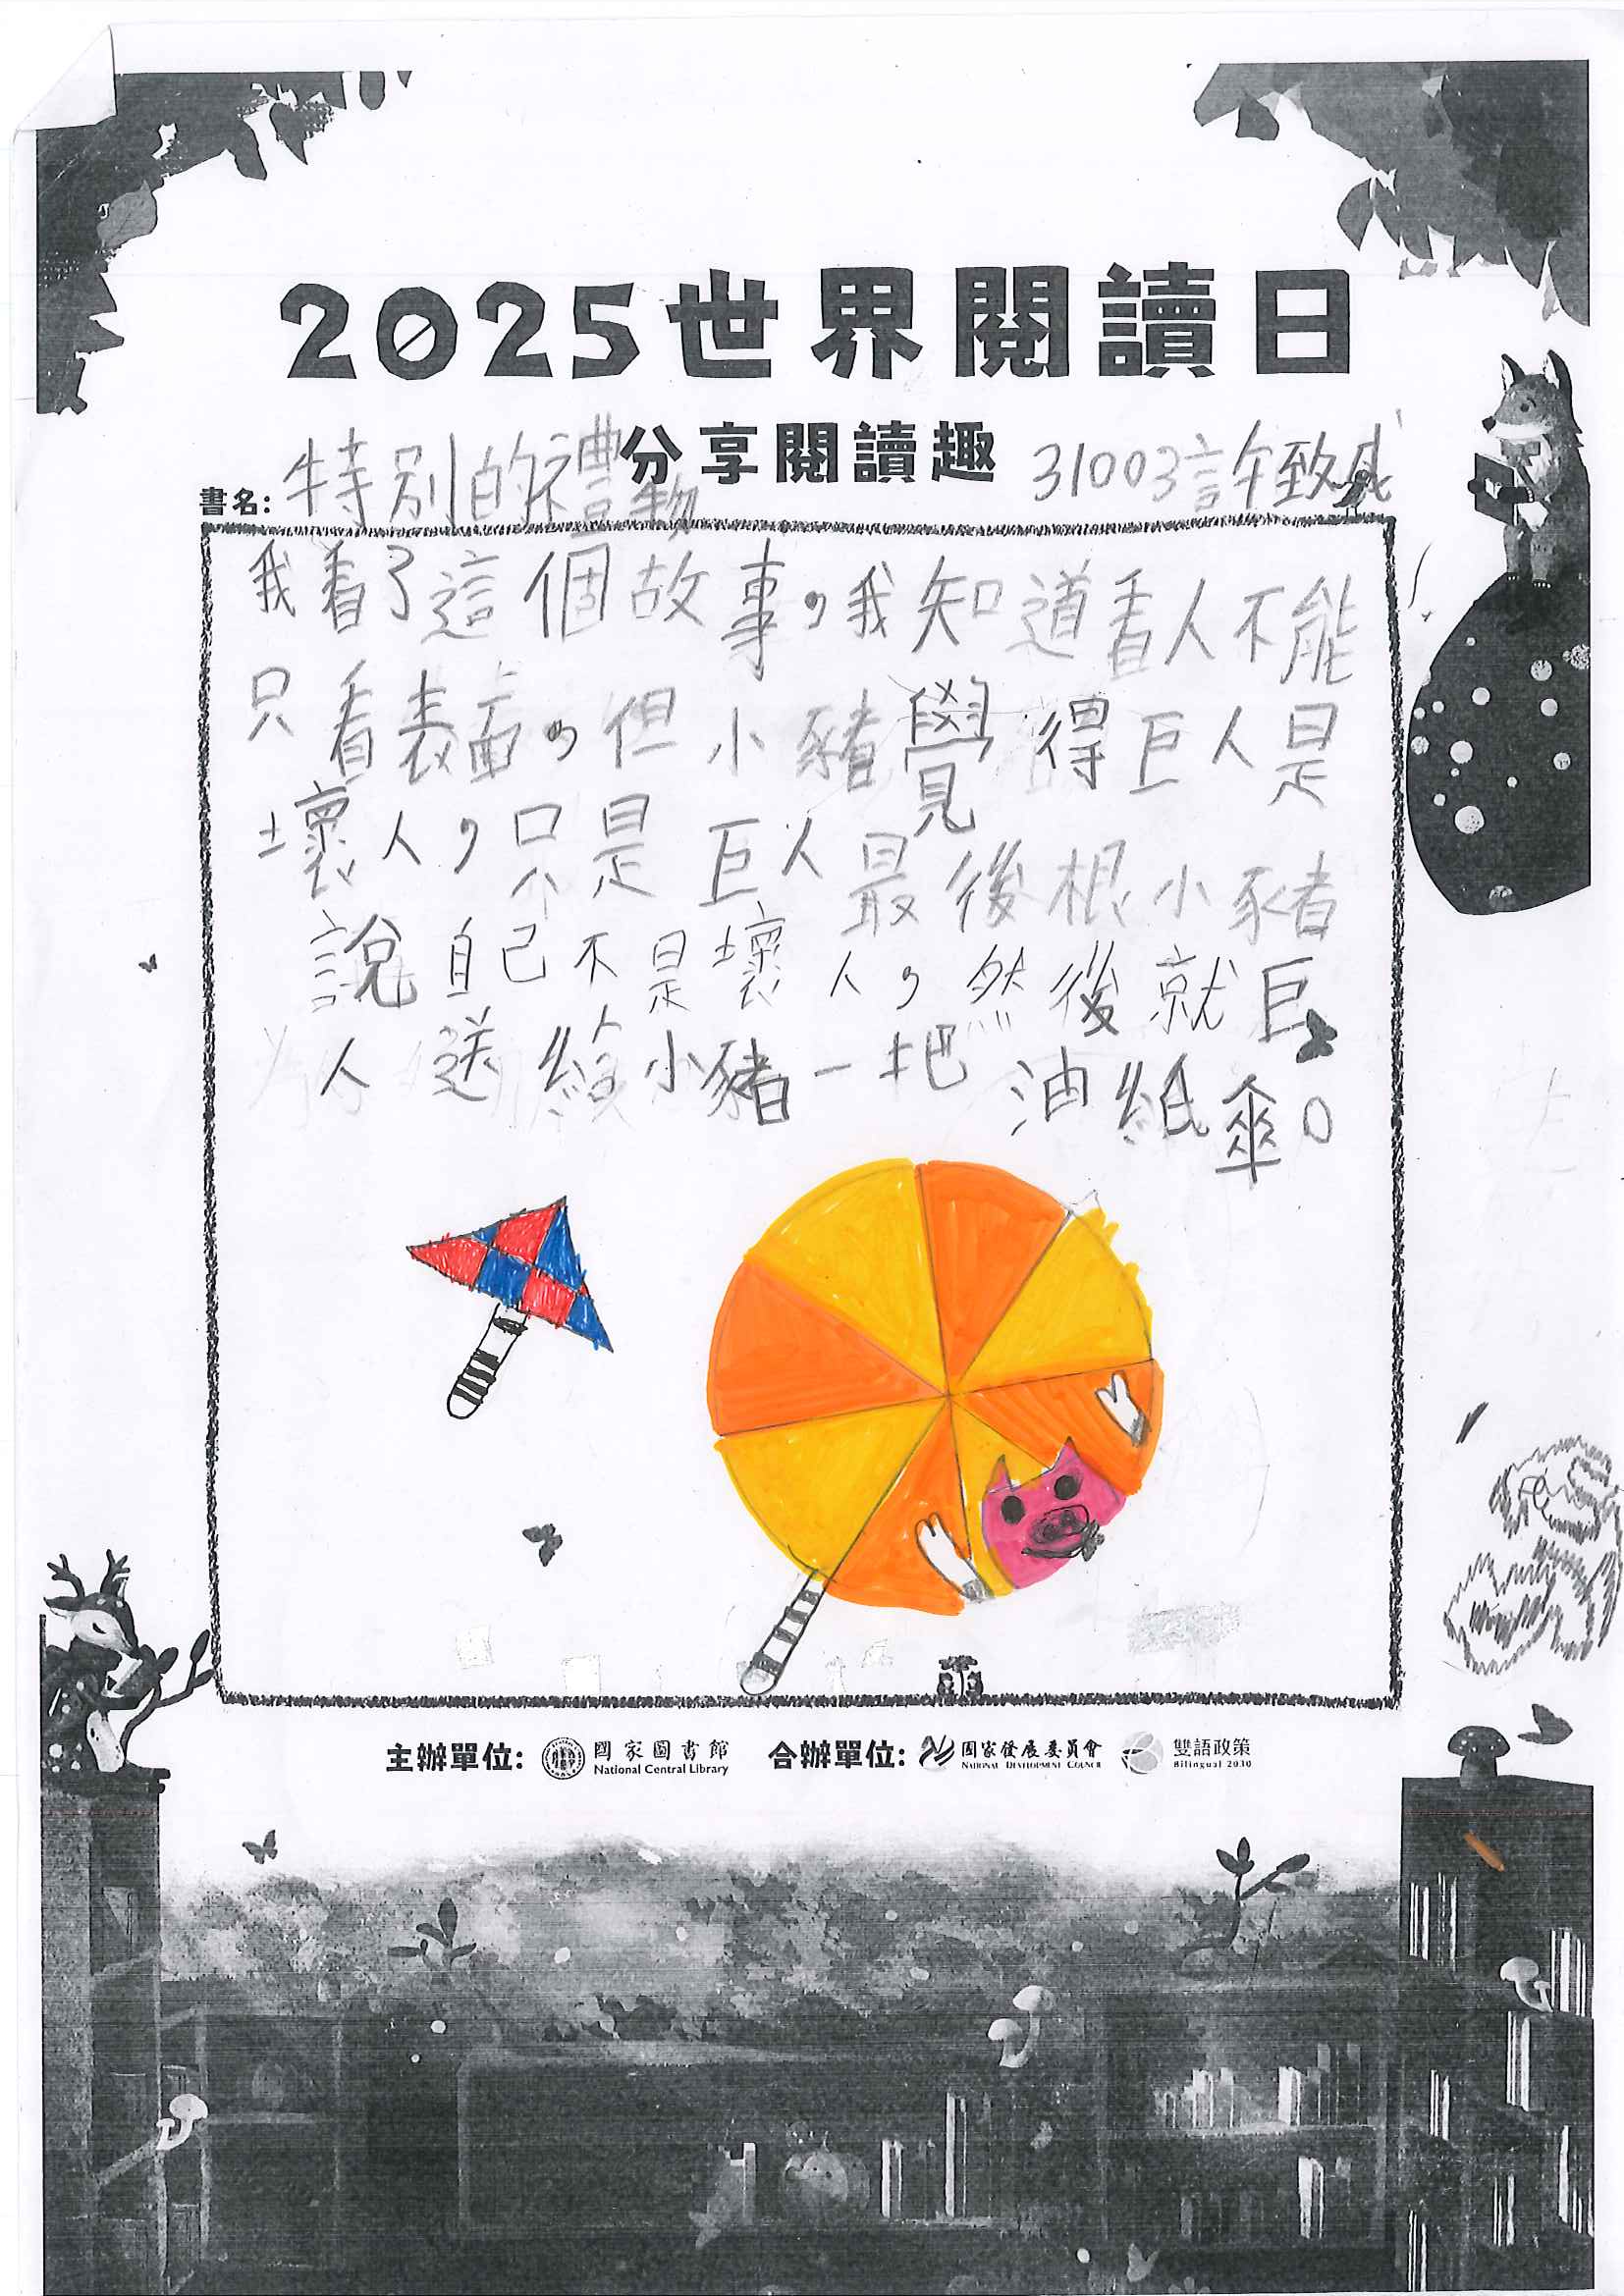 2025世界閱讀日
分享閱讀趣
書名: 特別的禮物
31003許致成
我看了這個故事,我知道看人不能
只看表面,但小豬覺得巨人是
壞人,只是巨人最後根小豬
說自己不是壞人,然後就巨
人送給小豬一把油紙傘。
主辦單位: 國家圖書館 National Central Library 合辦單位: 國家發展委員會 National Development Council 雙語政策 Bilingual 2030